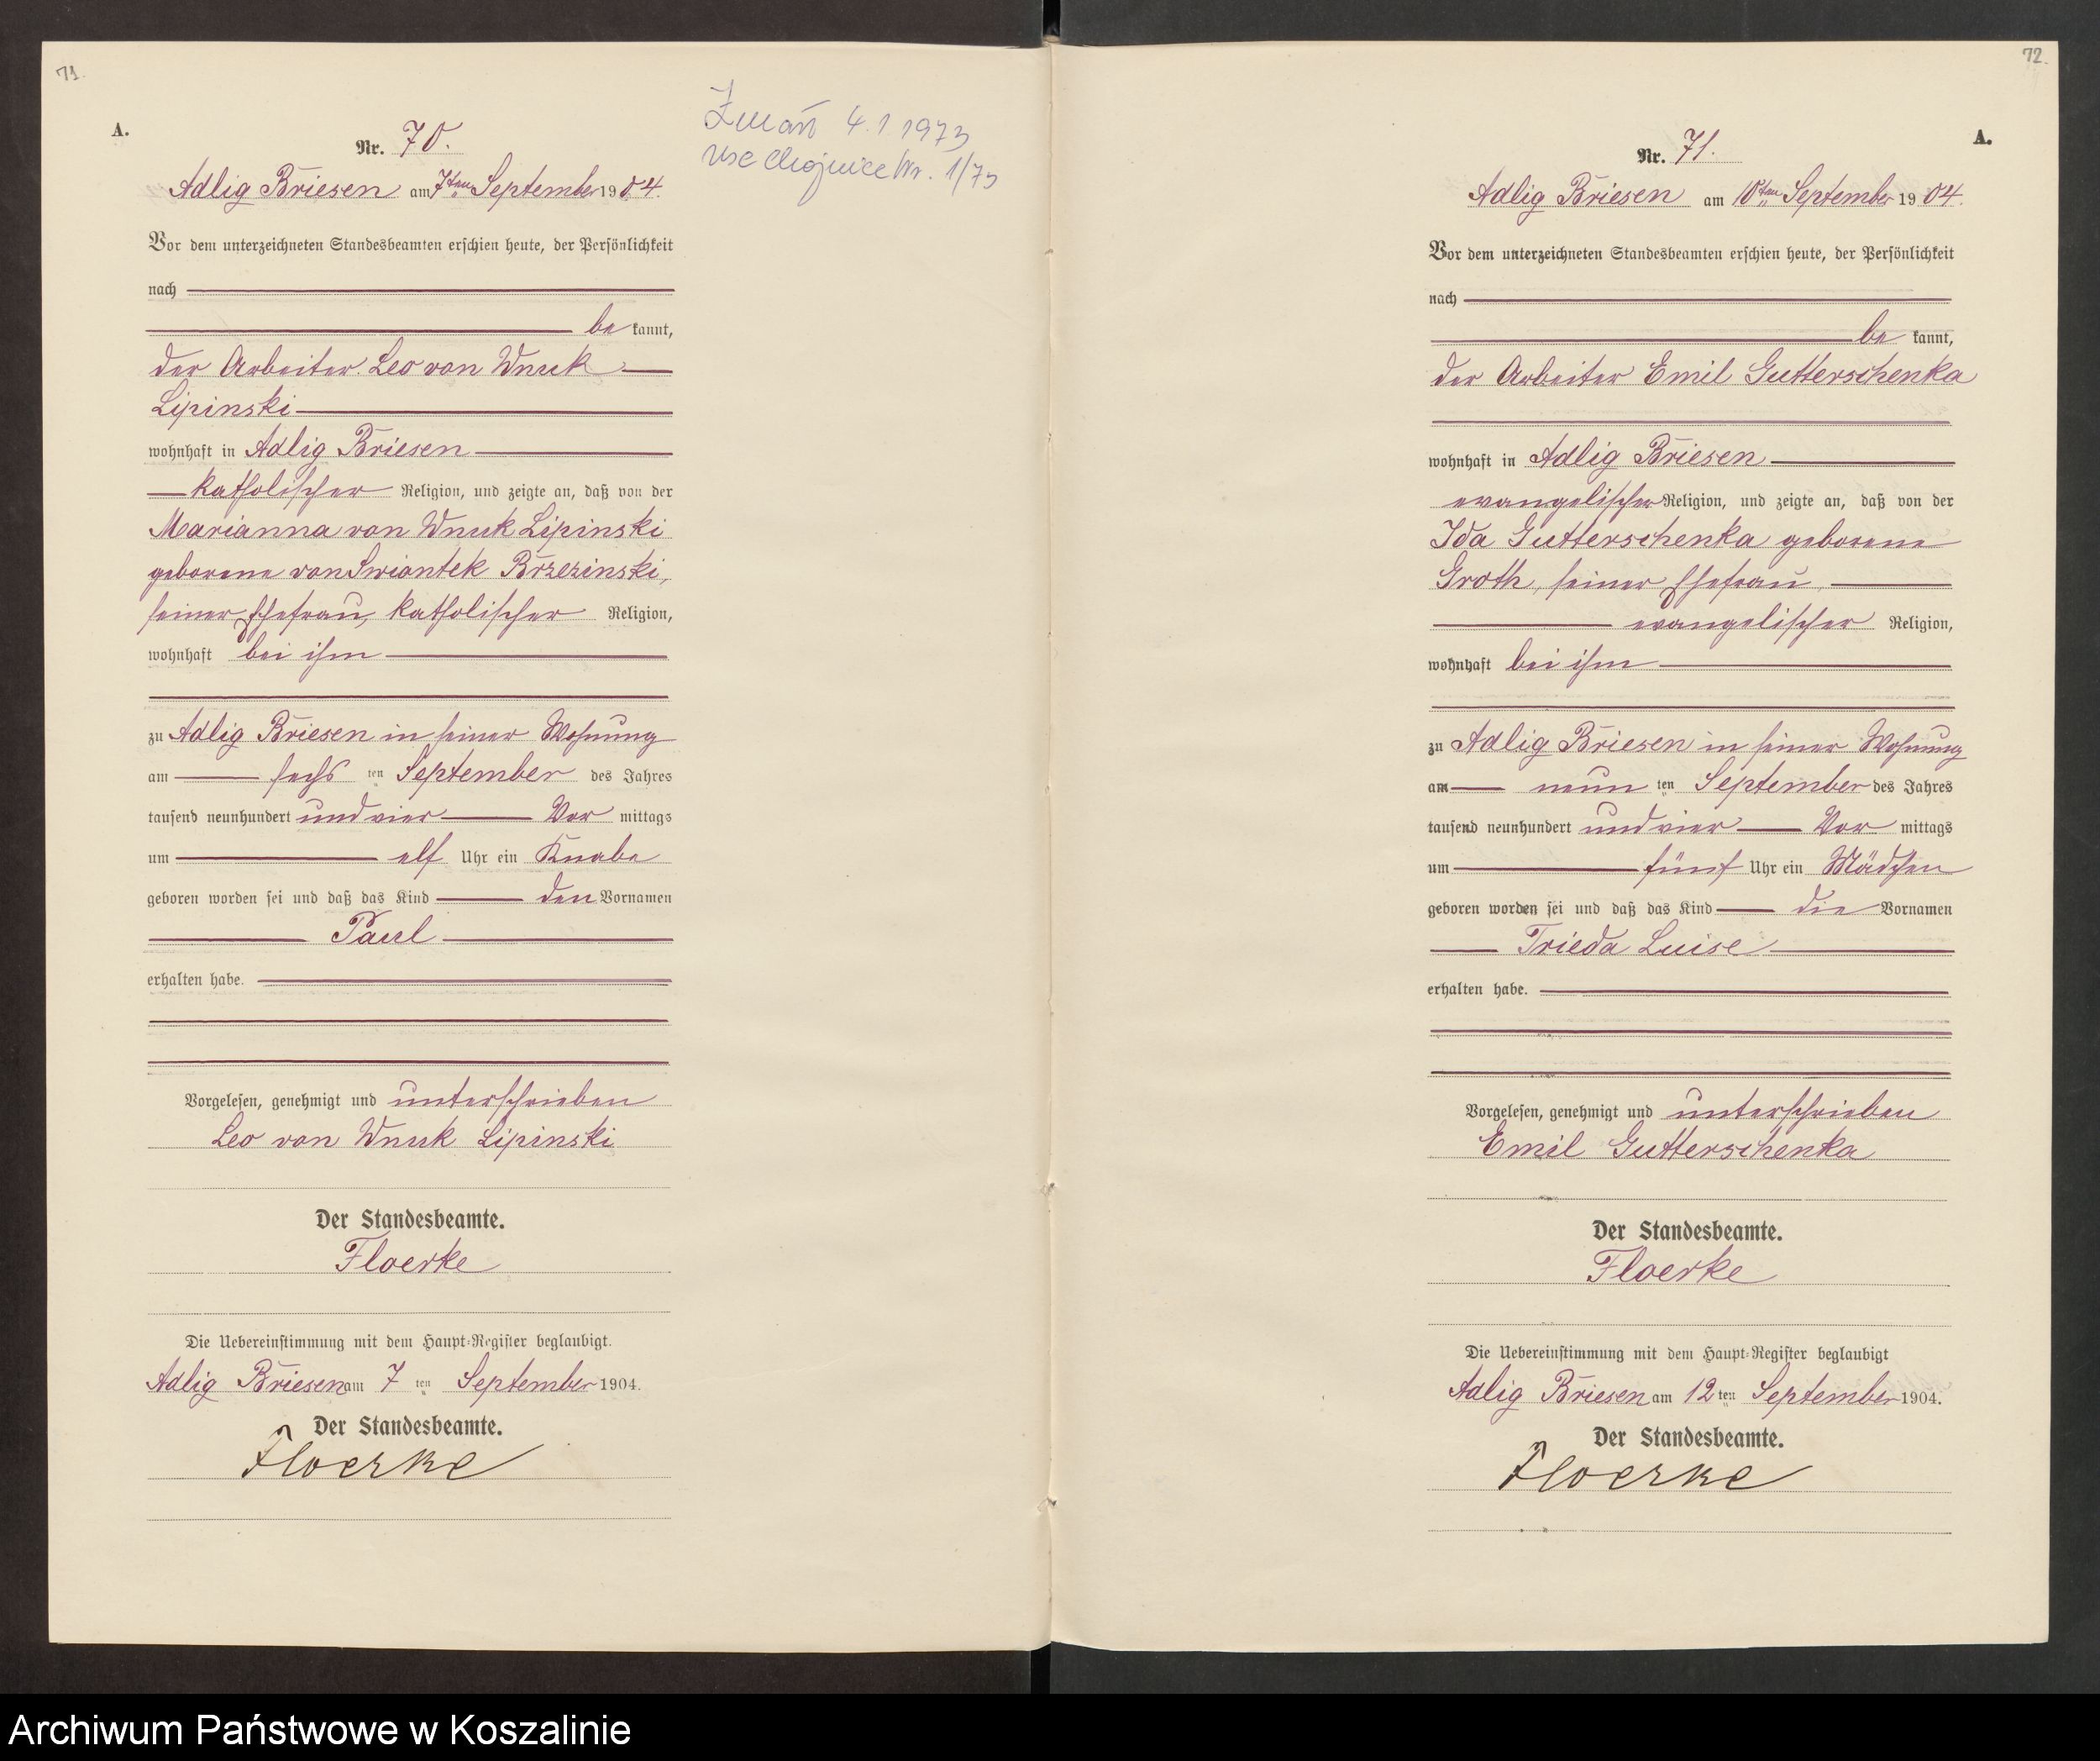 71.
A.
Nr. 70.
Adlig Briesen am 7ten September 1904.
Vor dem unterzeichneten Standesbeamten erschien heute, der Persönlichkeit
nach
be kannt,
der Arbeiter Leo von Wnuk
Lipinski
wohnhaft in Adlig Briesen
katholischer Religion, und zeigte an, daß von der
Marianna von Wnuk Lipinski
geborene von Swiontek Brzezinski,
seiner Ehefrau, katholischer Religion,
wohnhaft bei ihm
zu Adlig Briesen in seiner Wohnung
am sechs ten September des Jahres
tausend neunhundert und vier Vor mittags
um elf Uhr ein Knabe
geboren worden sei und daß das Kind den Vornamen
Paul
erhalten habe.
Vorgelesen, genehmigt und unterschrieben
Leo von Wnuk Lipinski
Der Standesbeamte.
Floerke
Die Uebereinstimmung mit dem Haupt-Register beglaubigt.
Adlig Briesen am 7 ten September 1904.
Der Standesbeamte.
Floerke
4.1.1973
USC Chojnice Nr. 1/73
72.
A.
Nr. 71.
Adlig Briesen am 10ten September 1904.
Vor dem unterzeichneten Standesbeamten erschien heute, der Persönlichkeit
nach
be kannt,
der Arbeiter Emil Gutterschenka
wohnhaft in Adlig Briesen
evangelischer Religion, und zeigte an, daß von der
Ida Gutterschenka geborene
Groth, seiner Ehefrau,
evangelischer Religion,
wohnhaft bei ihm
zu Adlig Briesen in seiner Wohnung
am neun ten September des Jahres
tausend neunhundert und vier Vor mittags
um fünf Uhr ein Mädchen
geboren worden sei und daß das Kind die Vornamen
Frieda Luise
erhalten habe.
Vorgelesen, genehmigt und unterschrieben
Emil Gutterschenka
Der Standesbeamte.
Floerke
Die Uebereinstimmung mit dem Haupt-Register beglaubigt
Adlig Briesen am 12 ten September 1904.
Der Standesbeamte.
Floerke
Archiwum Państwowe w Koszalinie